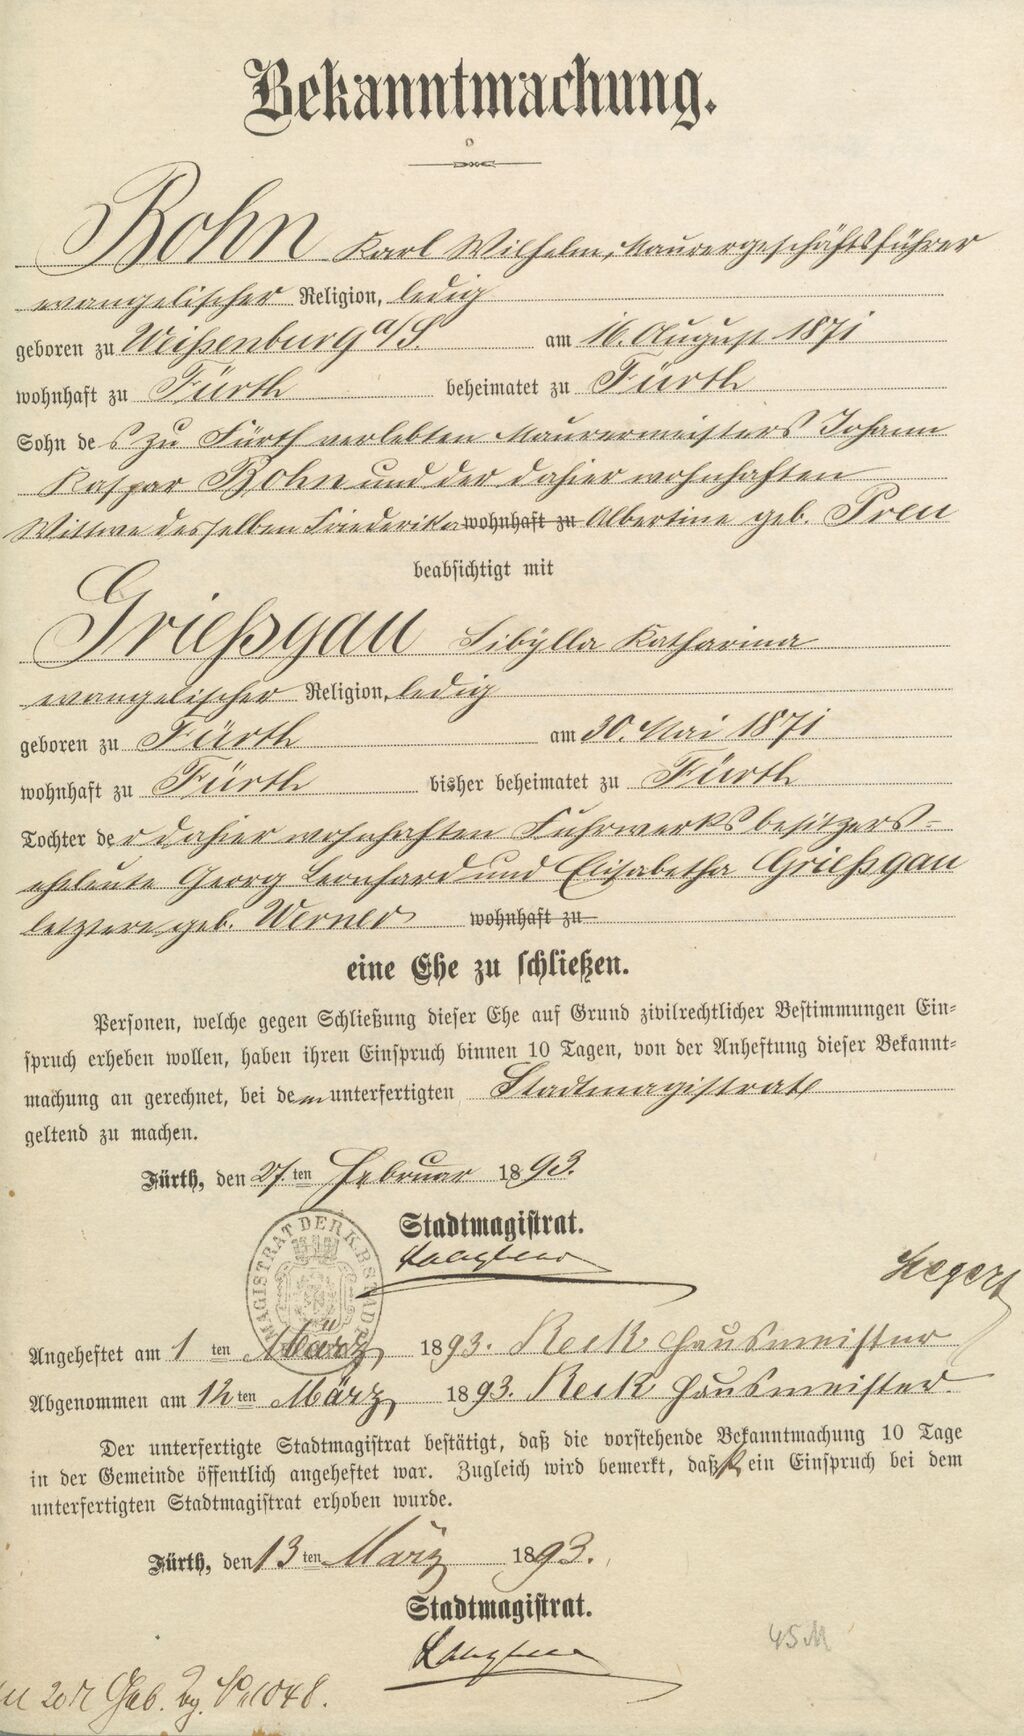 Bekanntmachung.
Rohn Karl Wilhelm, Maurergeschäftsführer
evangelischer Religion, ledig
geboren zu Weißenburg a/S. am 16. August 1871
wohnhaft zu Fürth beheimatet zu Fürth
Sohn des zu Fürth verlebten Maurermeisters Johann
Kaspar Rohn und der dahier wohnhaften
Wittwe desselben Friederika wohnhaft zu Albertine geb. Preu
beabsichtigt mit
Grießgau Sibylla Katharina
evangelischer Religion, ledig
geboren zu Fürth am 30. Mai 1871
wohnhaft zu Fürth bisher beheimatet zu Fürth
Tochter der dahier wohnhaften Fuhrwerksbesitzers-
eheleute Georg Leonhard und Elisabetha Grießgau
letztere geb. Werner wohnhaft zu
eine Ehe zu schließen.
Personen, welche gegen Schließung dieser Ehe auf Grund zivilrechtlicher Bestimmungen Ein-
spruch erheben wollen, haben ihren Einspruch binnen 10 Tagen, von der Anheftung dieser Bekannt-
machung an gerechnet, bei dem unterfertigten Stadtmagistrat
geltend zu machen.
Fürth, den 27.ten Februar 1893.
Stadtmagistrat.
MAGISTRAT DER K.B. STADT
Hegert
Angeheftet am 1 ten März 1893. Reck Hausmeister
Abgenommen am 12ten März 1893. Reck Hausmeister.
Der unterfertigte Stadtmagistrat bestätigt, daß die vorstehende Bekanntmachung 10 Tage
in der Gemeinde öffentlich angeheftet war. Zugleich wird bemerkt, daß kein Einspruch bei dem
unterfertigten Stadtmagistrat erhoben wurde.
Fürth, den 13ten März 1893.
Stadtmagistrat.
45 M